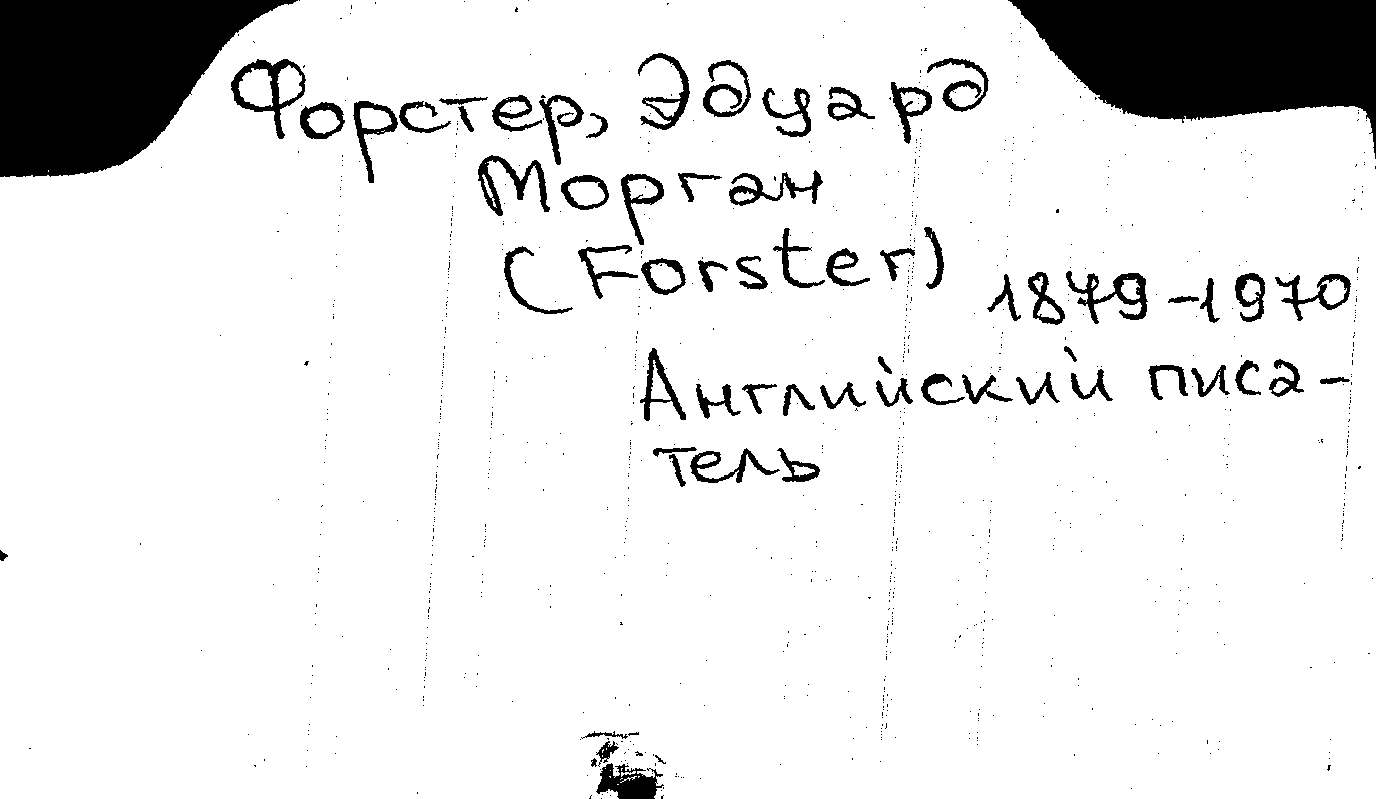 Форстер, Эдуард
Морган
(Forster) 1879-1970
Английский писа-
тель